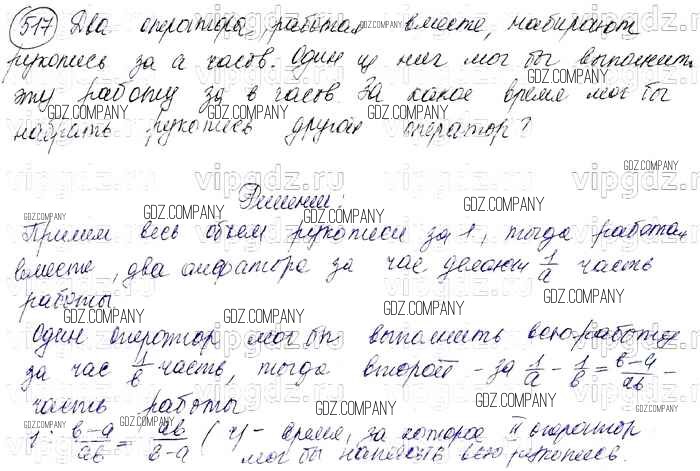 517 Два оператора, работая вместе, набирают
рукопись за a часов. Один из них мог бы выполнить
эту работу за в часов. За какое время мог бы
набрать рукопись другой оператор?
Решение:
Примем весь объем рукописи за 1, тогда работая
вместе, два оператора за час делают 1/a часть
работы
Один оператор мог бы выполнить всю работу
за час 1/в часть, тогда второй - за 1/a - 1/в = в-a/aв -
часть работы
1: в-a/aв = aв/в-a (ч) - время, за которое II оператор
мог бы напечатать всю рукопись.
GDZ.COMPANY
vipgdz.ru